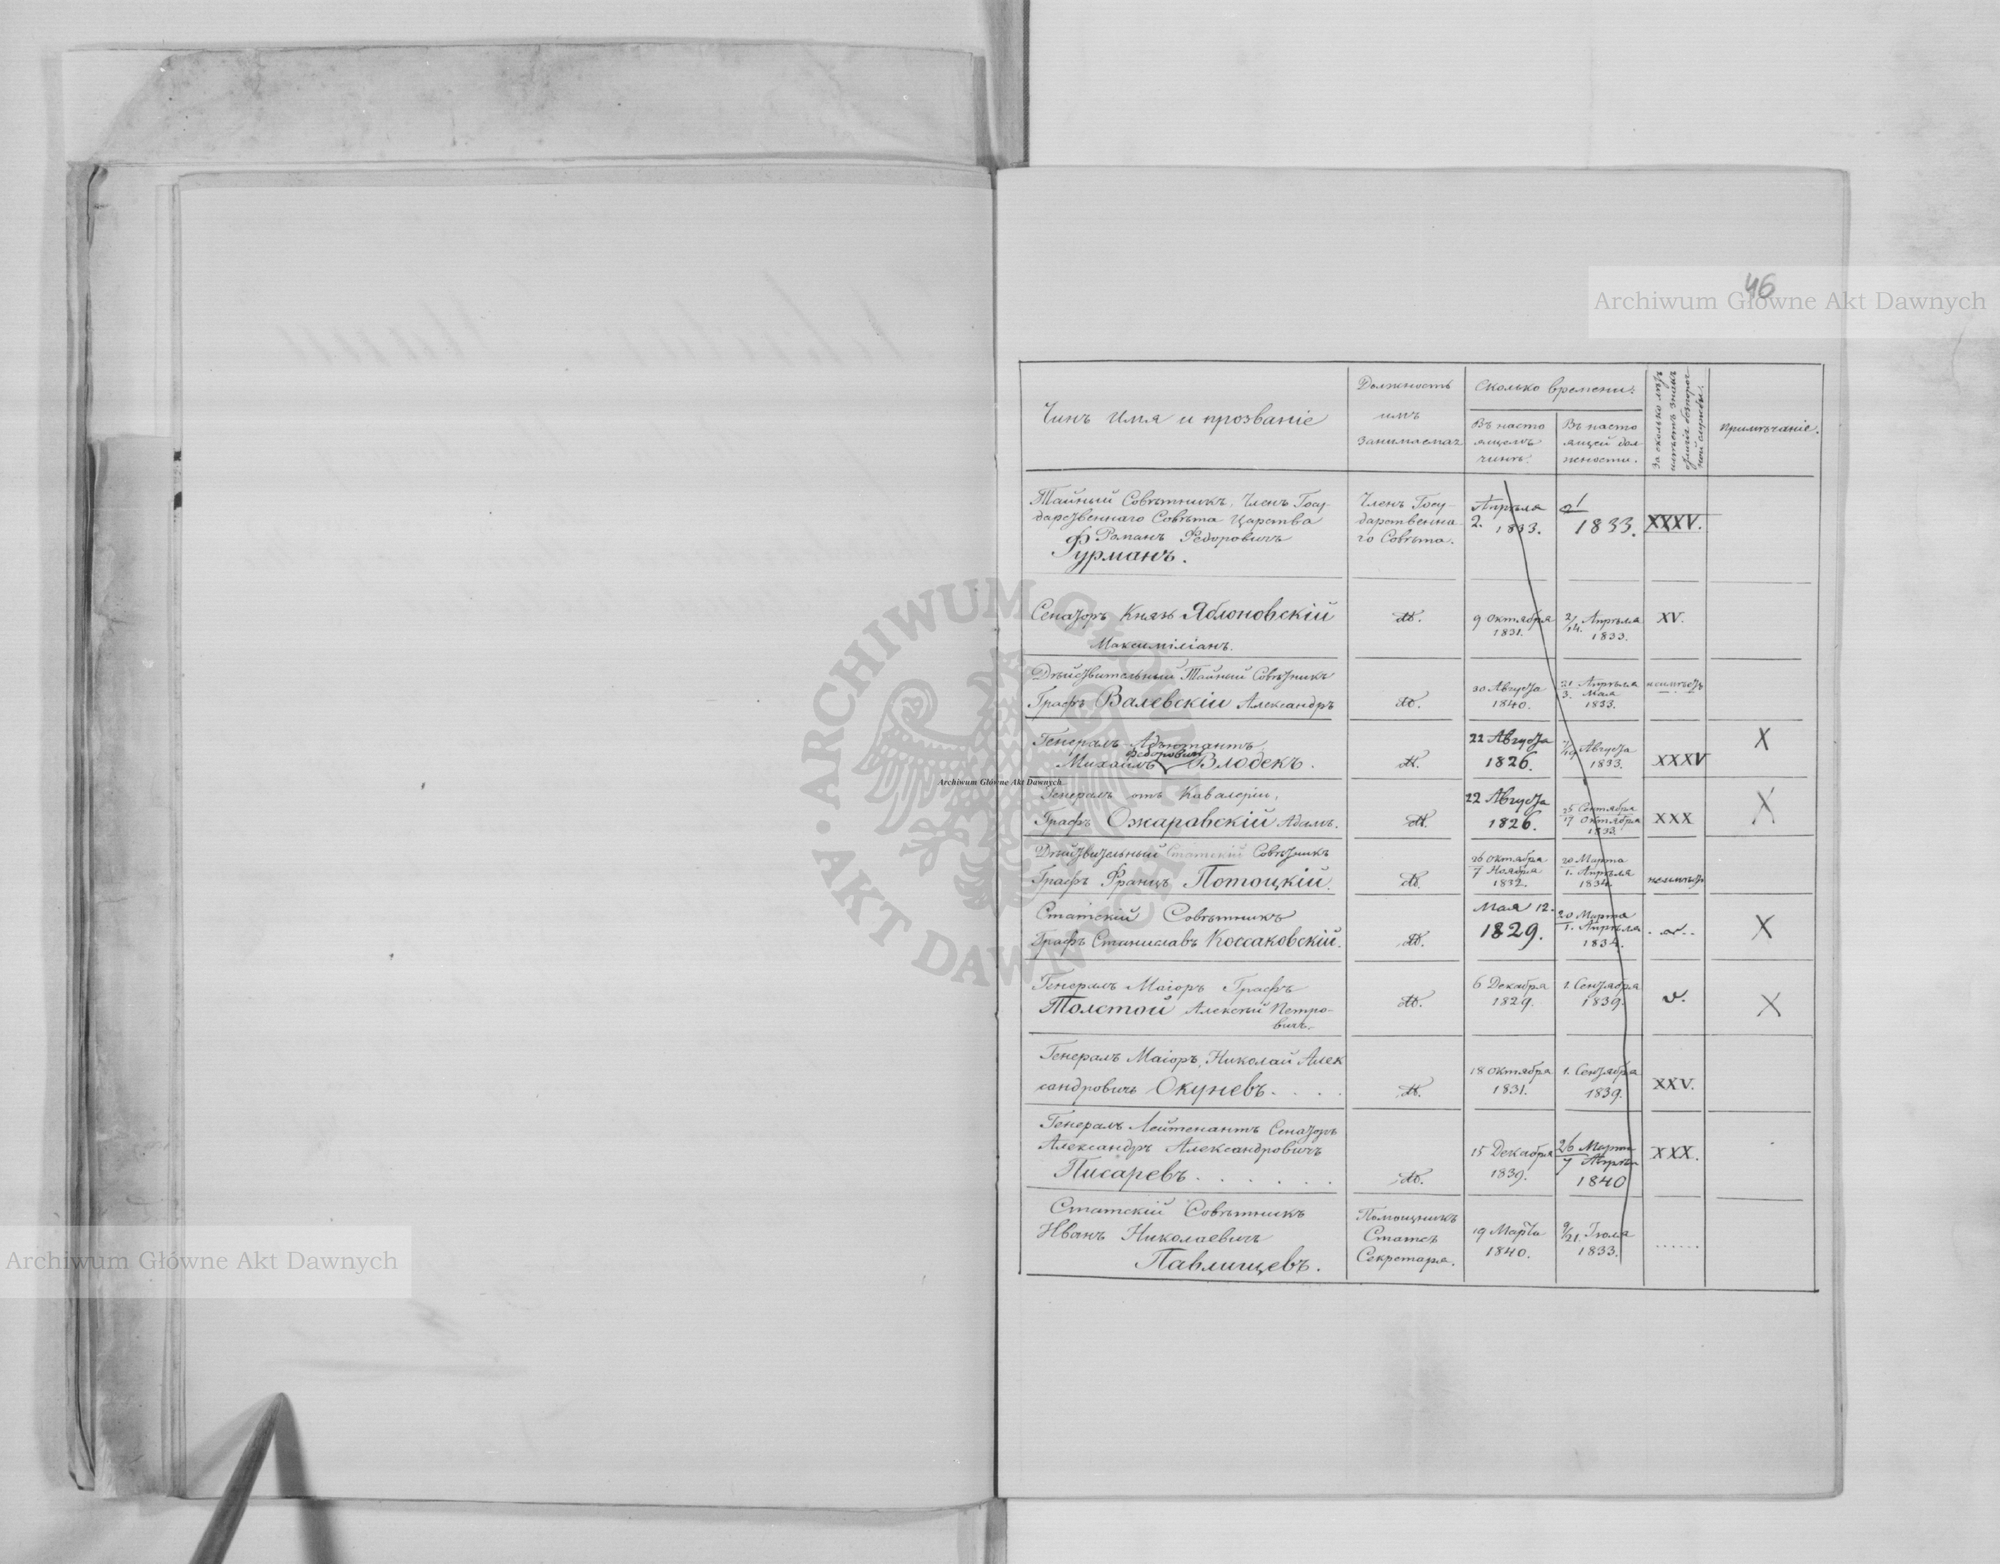 46
Archiwum Główne Akt Dawnych
Чинъ Имя и прозваніе
Должность
имъ
занимаемая
Сколько времени:
Въ насто
ящемъ
чинѣ:
Въ насто
ящей дол
жности.
За сколько лѣтъ
имѣетъ знакъ
отличія безпороч
ной службы.
Примѣчаніе.
Тайный Совѣтникъ, Членъ Госу-
дарственнаго Совѣта Царства
Романъ Федоровичъ
Фурманъ.
Членъ Госу-
дарственна-
го Совѣта.
Апрѣля
2. 1833.
2/1
1833.
XXXV.
Сенаторъ Князь Яблоновскій
Максимиліанъ.
9 Октября
1831.
2/14 Апрѣля
1833.
XV.
Дѣйствительный Тайный Совѣтникъ
Графъ Валевскій Александръ
30 Августа
1840.
21 Апрѣля
3. Мая
1833.
неимѣетъ
Генералъ-Адъютантъ
Федоровичъ
Михаилъ Влодекъ.
22 Августа
1826.
Августа
1833.
XXXV
X
Генералъ отъ Кавалеріи,
Графъ Ожаровскій Адамъ.
22 Августа
1826.
25 Сентября
17 Октября
1833.
XXX
X
Дѣйствительный Статскій Совѣтникъ
Графъ Францъ Потоцкій.
26 Октября
7 Ноября
1832.
20 Марта
1. Апрѣля
1834.
неимѣетъ
Статскій Совѣтникъ
Графъ Станиславъ Коссаковскій.
Мая 12.
1829.
20 Марта
1. Апрѣля
1834.
X
Генералъ Маіоръ Графъ
Толстой Алексѣй Петро-
вичъ.
6 Декабря
1829.
1. Сентября
1839.
X
Генералъ Маіоръ, Николай Алек
сандровичъ Окуневъ. . . .
18 Октября
1831.
1. Сентября
1839.
XXV.
Генералъ Лейтенантъ Сенаторъ
Александръ Александровичъ
Писаревъ . . . . . .
15 Декабря
1839.
26 Марта
7 Апрѣля
1840
XXX.
Статскій Совѣтникъ
Иванъ Николаевичъ
Павлищевъ.
Помощникъ
Статсъ
Секретаря.
19 Марта
1840.
9/21 Іюля
1833.
......
ARCHIWUM GŁÓWNE AKT DAWNYCH
Archiwum Główne Akt Dawnych
Archiwum Główne Akt Dawnych